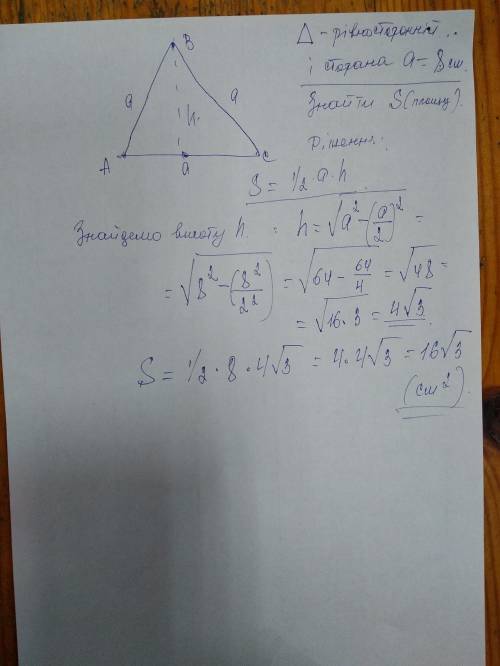 B
a
a
h.
A
a
C
Δ - рівносторонній
і сторона a = 8 см.
Знайти S (площу).
Рішення:
S = 1/2 · a · h.
Знайдемо висоту h. : h = √(a² - (a/2)²) =
= √(8² - (8²/2²)) = √(64 - 64/4) = √48 =
= √(16 · 3) = 4√3.
S = 1/2 · 8 · 4√3 = 4 · 4√3 = 16√3
(см²).